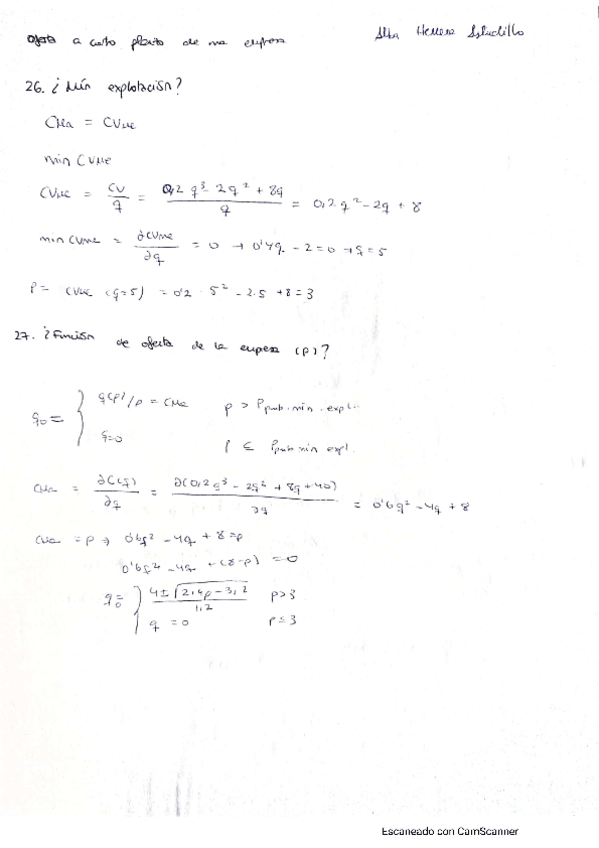 Oferta a corto plazo de una empresa
Alba Herrera
26. ¿Mín explotación?
CMa = CVMe
min CVMe
CVMe = CV/q = 0,2 q³ - 2q² + 8q / q = 0,2q² - 2q + 8
min CVMe = ∂CVMe/∂q = 0 → 0'4q - 2 = 0 → q = 5
P = CVMe (q=5) = 0'2 · 5² - 2·5 + 8 = 3
27. ¿Función de oferta de la empresa (p)?
q₀ = { q(p) / p = CMa p > P pub. min. expl.
q=0 p ≤ P pub min expl.
CMa = ∂C(q)/∂q = ∂(0,2q³ - 2q² + 8q + 40)/∂q = 0'6q² - 4q + 8
CMa = p → 0'6q² - 4q + 8 = p
0'6q² - 4q + (8-p) = 0
q₀ = { 4 ± √2,4p - 3,2 / 1,2 p > 3
q = 0 p ≤ 3
Escaneado con CamScanner